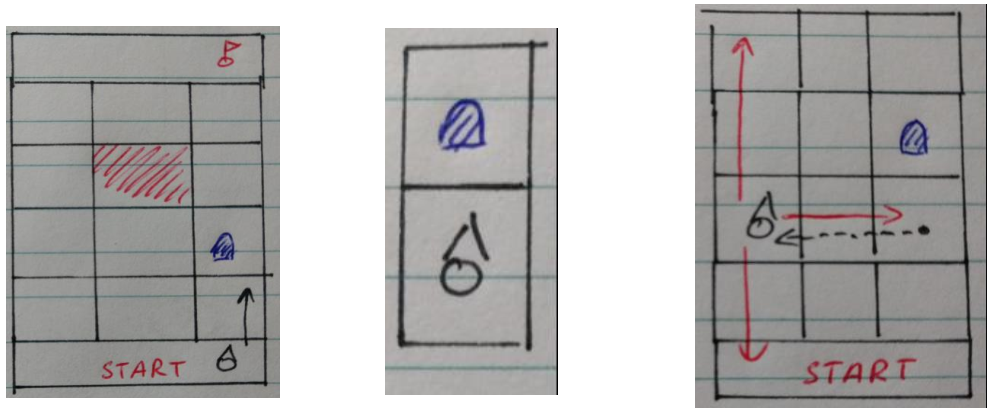 START
START